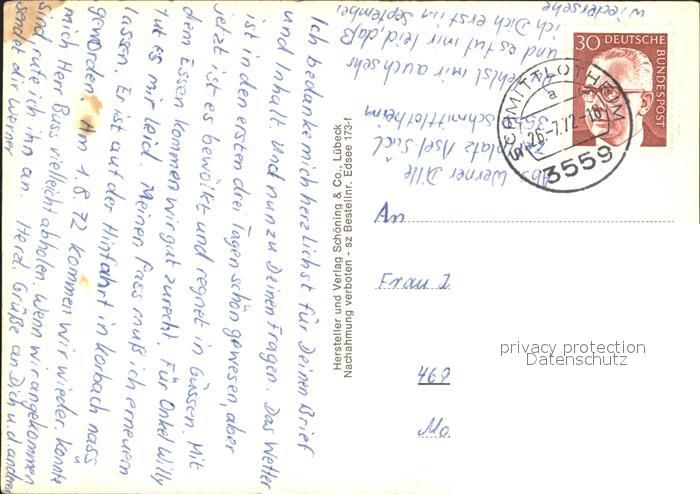 Ich bedanke mich herzlichst für Deinen Brief
und Inhalt. Und nun zu Deinen Fragen. Das Wetter
ist in den ersten drei Tagen schön gewesen, aber
jetzt ist es bewölkt und regnet in Güssen. Mit
dem Essen kommen wir gut zurecht. Für Onkel Willy
tut es mir leid. Meinen Pass muß ich erneuern
lassen. Er ist auf der Hinfahrt in Korbach nass
geworden. Am 1.8.72 kommen wir wieder. Könnte
mich Herr Buss vielleicht abholen. Wenn wir angekommen
sind, rufe ich ihn an. Herzl. Grüße an Dich u. d anderen
sendet dir Werner
Hersteller und Verlag Schöning & Co., Lübeck
Nachahmung verboten - sz Bestellnr. Edsee 173-f
Abs. Werner Dille
Zeltplatz Asel-Süd
3559 Schmittlotheim
fehlst mir auch sehr
und es tut mir leid daß
ich Dich erst im September
wiedersehe
30 DEUTSCHE
BUNDESPOST
SCHMITTLOTHEIM
a
26.-7.72-18
3559
An
Frau
469
Mo
privacy protection
Datenschutz